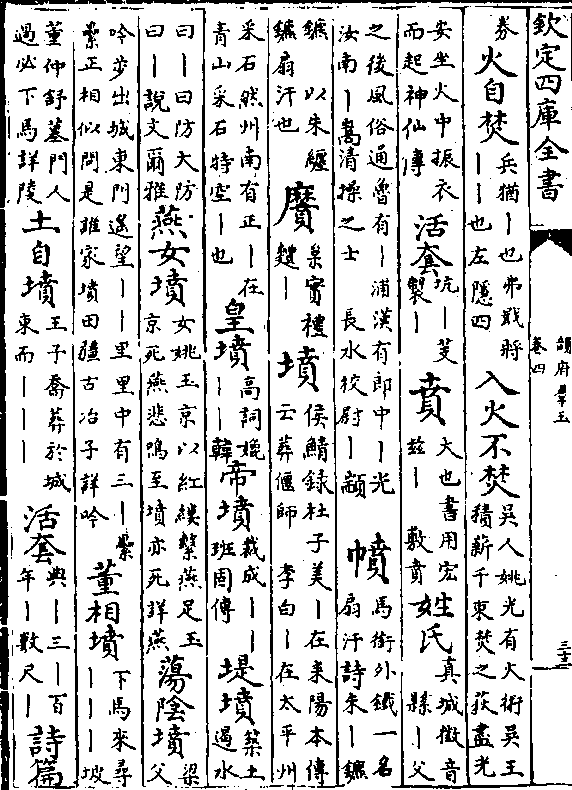 欽定四庫全書
韻府羣玉
卷四
三十三
券 火自焚 兵猶丨也弗戢將丨丨也左隱四 入火不焚 吳人姚光有火術吳王積薪千束焚之荻盡光
安坐火中振衣而起神仙傳 活套 坑丨芟製丨 賁 大也書用宏茲丨 敷賁 姓氏 真城徵音縣丨父
之後風俗通魯有丨浦漢有郎中丨光汝南丨嵩清操之士 長水校尉丨顗 幩 馬銜外鐵一名扇汗詩朱丨鑣
鑣以朱纏鑣扇汗也 黂 枲實禮麷丨 墳 侯鯖錄杜子美丨在耒陽本傳云葬偃師 李白丨在太平州
采石然州南有正丨在青山采石特空丨也 皇墳 高詞媲丨丨韓 帝墳 裁成丨丨班固傳 堤墳 築土遏水
曰丨曰防大防曰丨說文爾雅 燕女墳 女姚玉京以紅縷繫燕足玉京死燕悲鳴至墳亦死詳燕 蕩陰墳 梁父
吟步出城東門遥望丨丨里里中有三丨纍纍正相似問是誰家墳田疆古冶子詳吟 董相墳 下馬來尋丨丨丨坡
董仲舒墓門人過必下馬詳陵 土自墳 王子喬葬於城東而丨丨丨 活套 典丨三丨百年丨數尺丨 詩篇